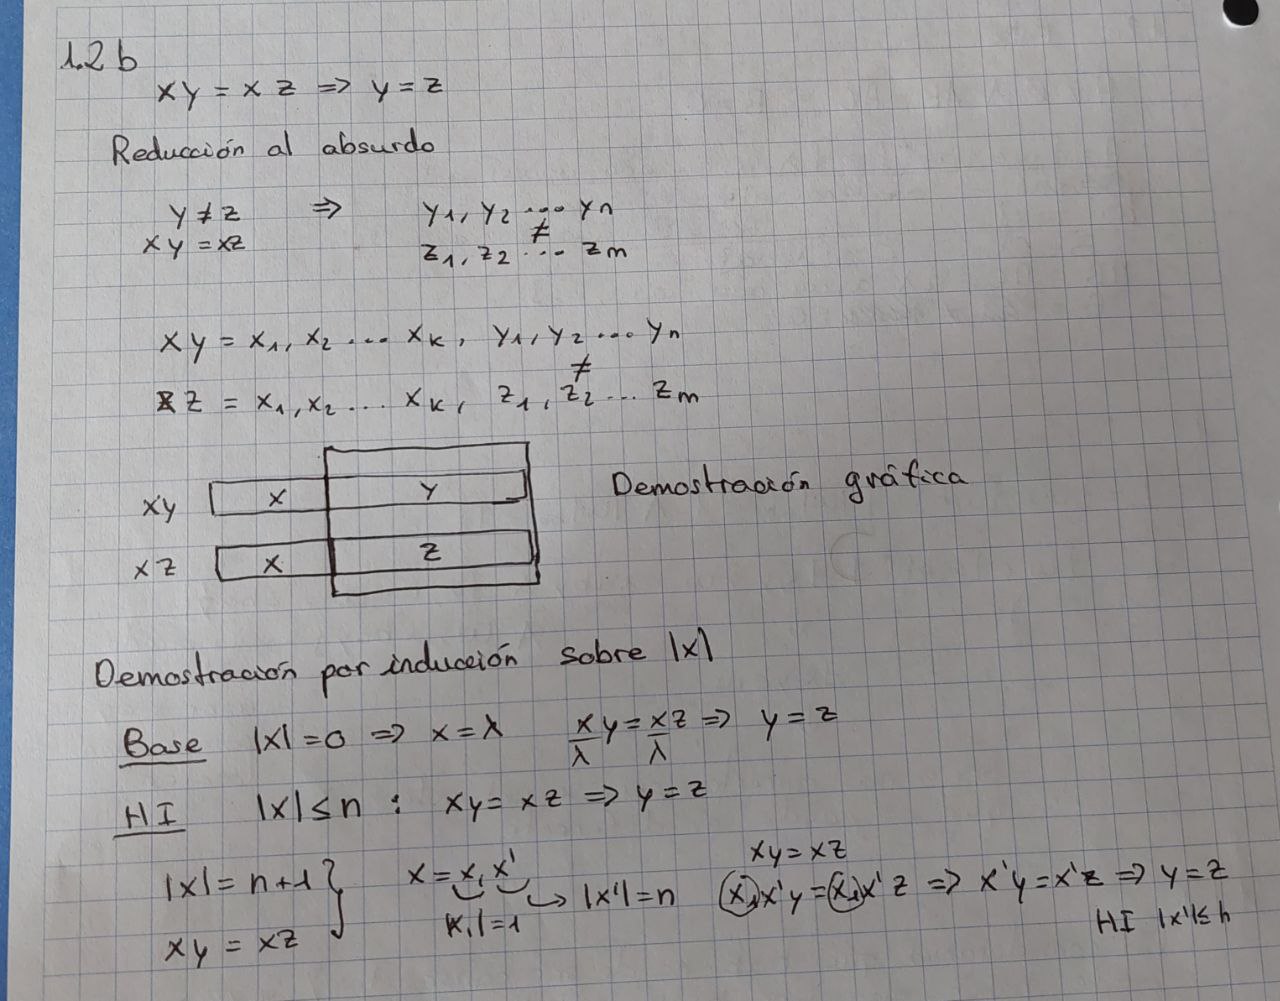 1.2 b
xy = xz ⇒ y = z
Reducción al absurdo
y ≠ z ⇒ y1, y2 ... yn
≠
xy = xz z1, z2 ... zm
xy = x1, x2 ... xk, y1, y2 ... yn
≠
xz = x1, x2 ... xk, z1, z2 ... zm
xy x y Demostración gráfica
xz x z
Demostración por inducción sobre |x|
Base |x| = 0 ⇒ x = λ xy = xz ⇒ y = z
λ λ
HI |x| ≤ n : xy = xz ⇒ y = z
xy = xz
|x| = n+1 } x = x1x' → |x'| = n x1x'y = x1x'z ⇒ x'y = x'z ⇒ y = z
xy = xz |x1| = 1 HI |x'| ≤ n